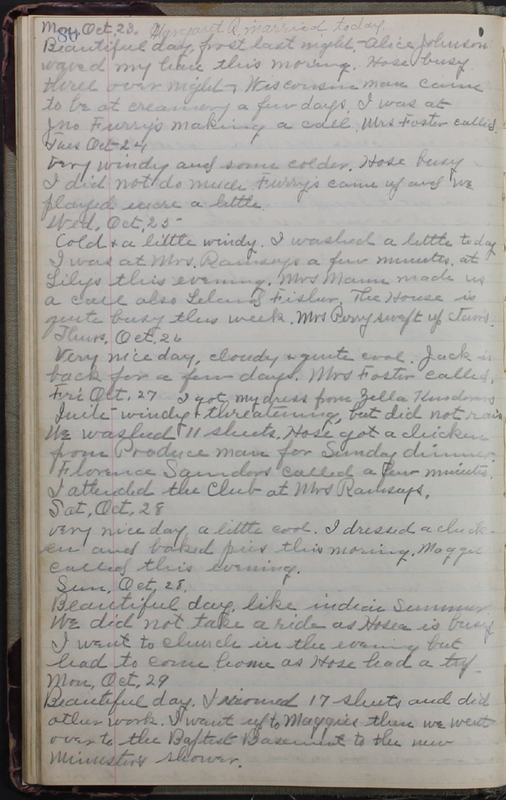 80
Mon, Oct, 23. Margaret R. married today.
Beautiful day, frost last night - Alice Johnson
waved my hair this morning. Hose busy
three over night & Wisconsin man came
to be at creamery a few days. I was at
Jno Furry's making a call. Mrs Foster called.
Tues Oct 24
Very windy and some colder. Hose busy
I did not do much Furry's came up and we
played a little.
Wed, Oct, 25
Cold & a little windy. I washed a little today
I was at Mrs. Ramseys a few minutes, at
Lilys this evening. Mrs Mann made us
a call also Leland Fisher. The House is
quite busy this week. Mrs Perry swept up stairs.
Thurs, Oct, 26
Very nice day, cloudy & quite cool. Jack is
back for a few days. Mrs Foster called.
Fri Oct, 27 I got my dress from Zella
Quite windy & threatening, but did not rain
We washed 11 sheets. Hose got a chicken
from Produce man for Sunday dinner.
Florence Saunders called a few minutes.
I attended the Club at Mrs Ramseys.
Sat, Oct, 28
Very nice day, a little cool. I dressed a chick-
en and baked pies this morning. Maggie
called this evening.
Sun, Oct, 28.
Beautiful day, like indian Summer
We did not take a ride as Hosea is busy
I went to church in the evening but
had to come home as Hose had a try.
Mon, Oct, 29
Beautiful day. I ironed 17 sheets and did
other work. I went up to Maggies then we went
over to the Baptist Basement to the new
Ministers shower.